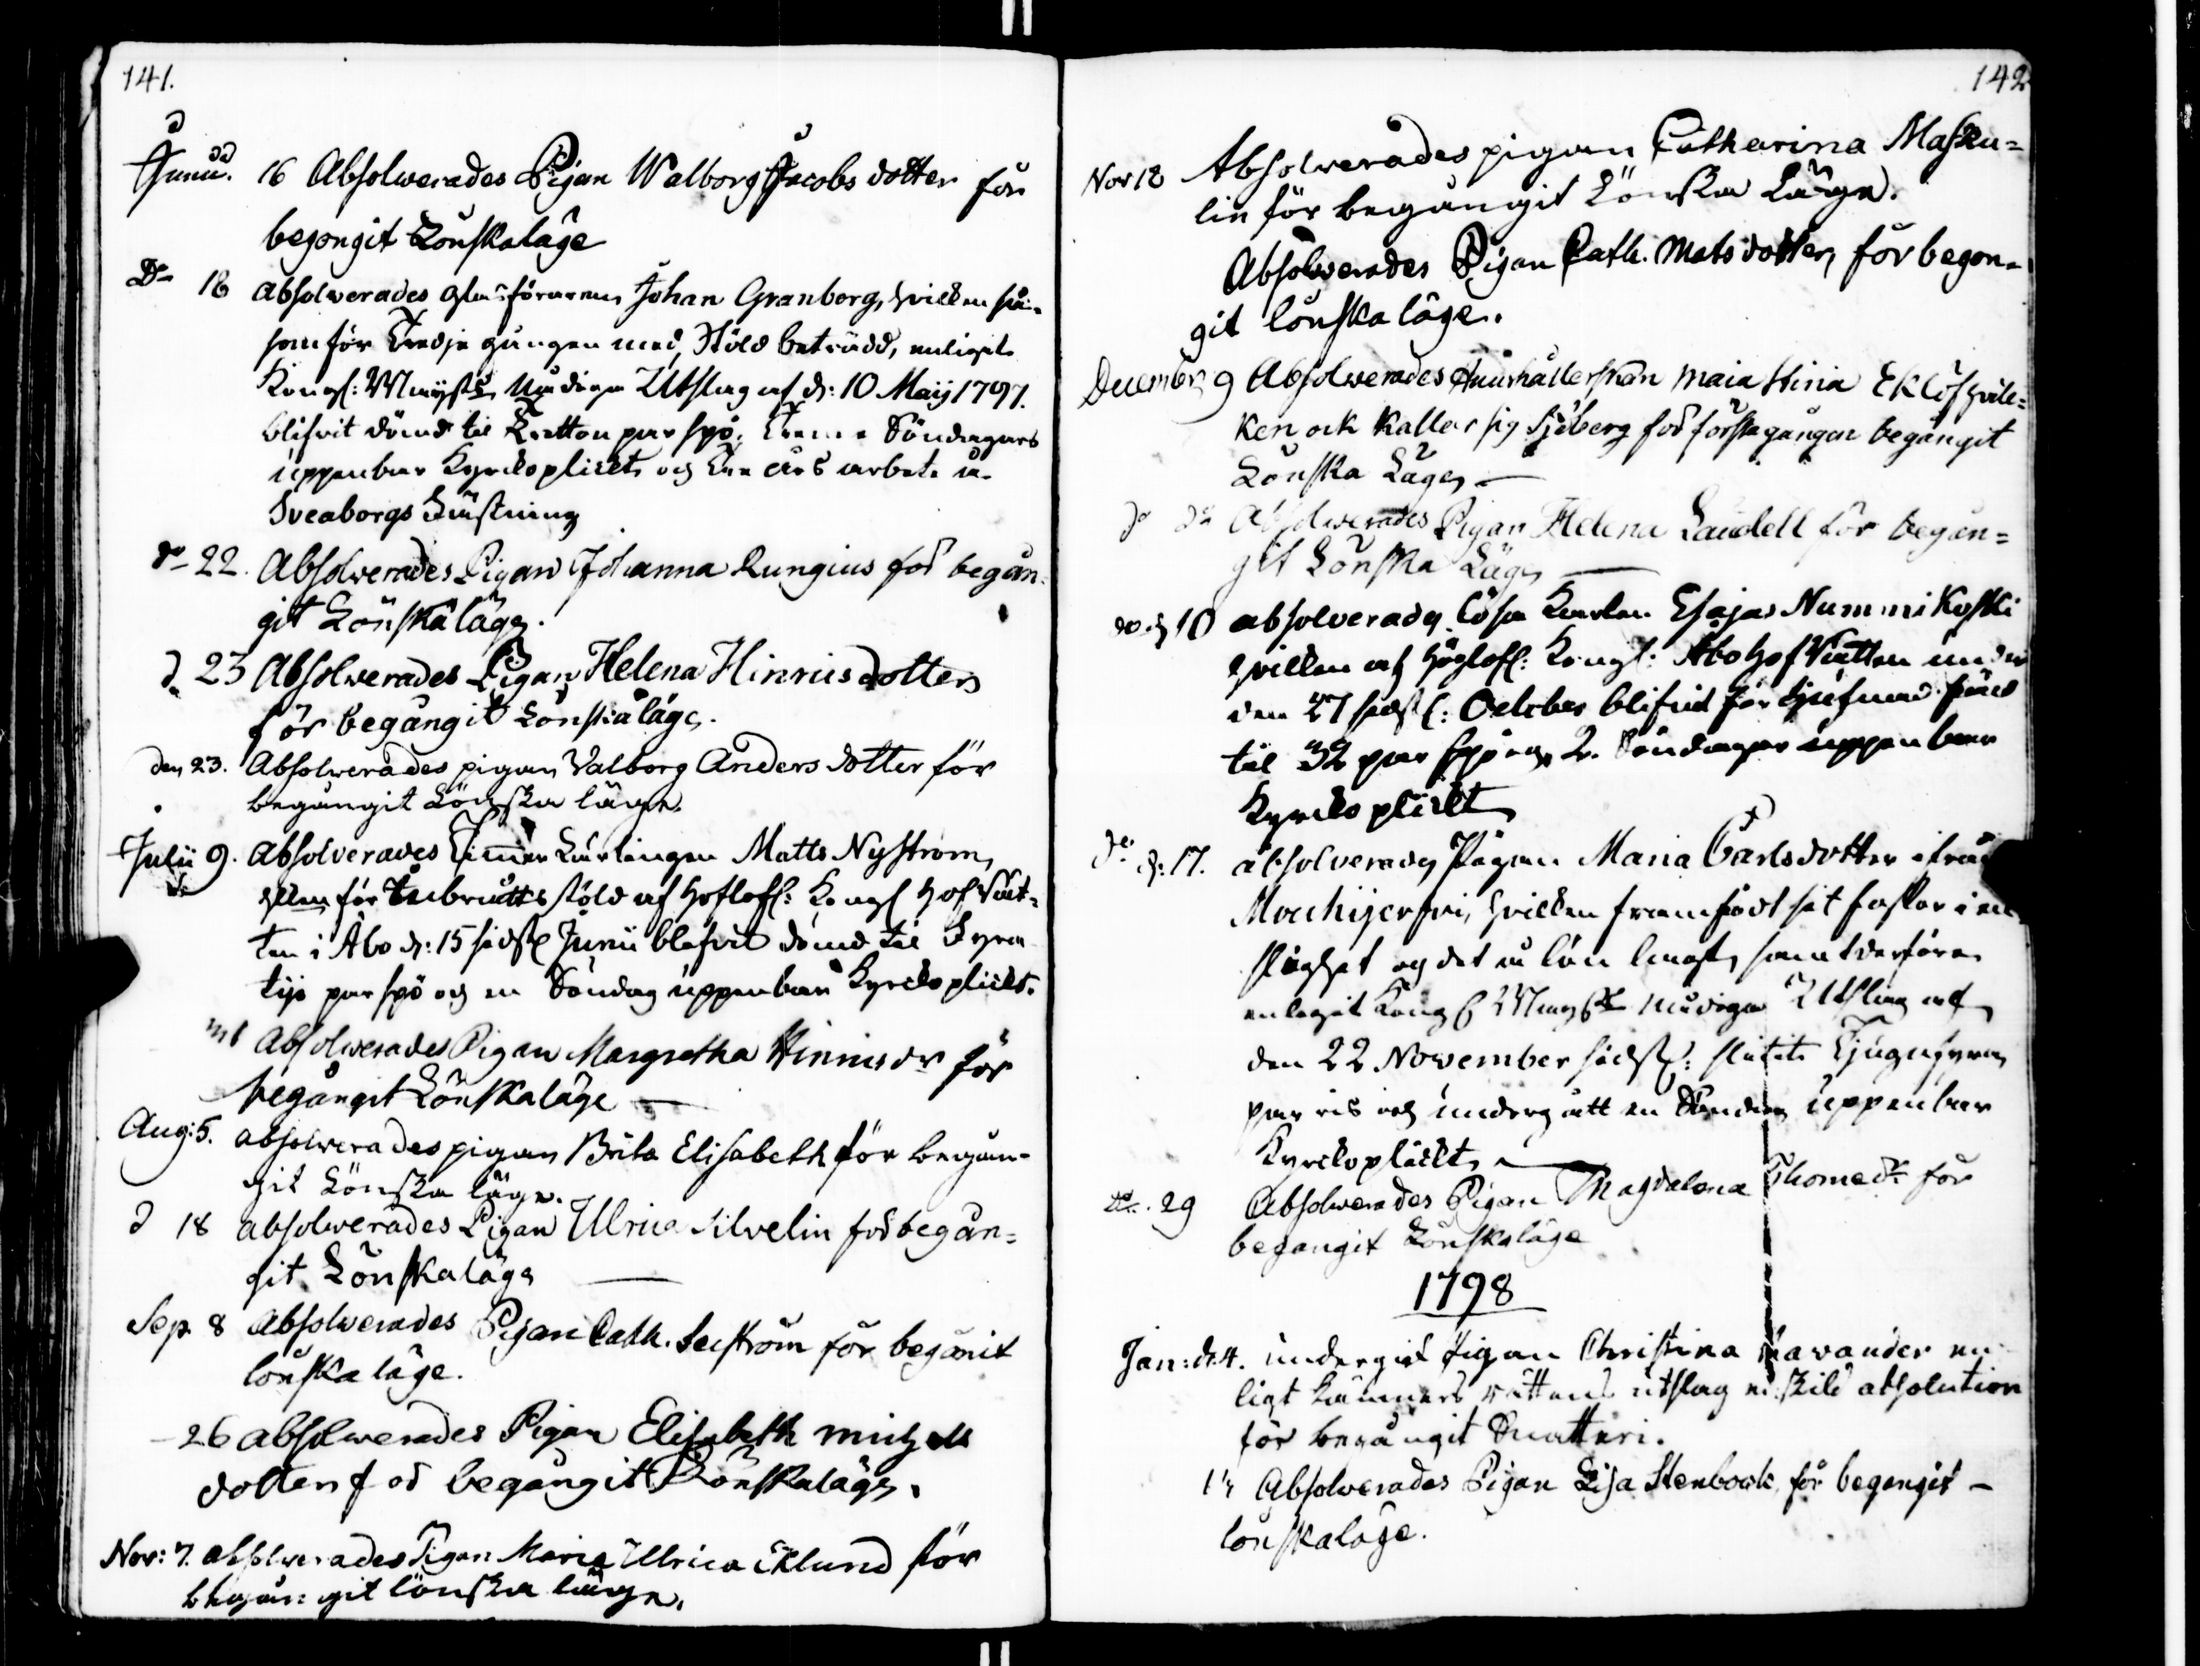 141.
Junii. 16 Absolverades Pigan Walborg Jacobs dotter för
begongit Lönskaläge
Do 18 absolverades Johan Granberg, hvilken så-
som för Tredje gången med Stöld beträdd, enligit
Kongl: Maijsts Nådiga Utslag af d: 10 Maij 1797.
blifvit dömd til Tretton par spö, Trenne Söndagars
uppenbar Kyrkoplickt och Tre års arbete å
Sveaborgs Fästning
do 22. Absolverades Pigan Johanna Rungius för began-
git Lönskaläge.
d. 23 Absolverades Pigan Helena Hinricsdotter
för begångit Lönskaläge.
den 23. Absolverades pigan Valborg Anders dotter för
begångit Lönska läge.
Julii 9. Absolverades Timmer Lärlingen Matts Nyström,
hvilken för Inbrotts stöld af Höflofl: Kongl Hof Rät-
ten i Åbo d: 15 sidstl Junii blefvit dömd til Fyra
tijo par spö och en Söndag uppenbar Kyrkoplickt.
Absolverades Pigan Margretha Hinricsdr för
begångit Lönskaläge
Aug: 5. absolverades pigan Brita Elisabeth för begån-
git Lönska läge.
d 18 absolverades Pigan Ulrica Silvelin för begån=
git Lönskaläge
Sep. 8 Absolverades Pigan Cath. Seström för begånit
lönska läge.
- 26 absolverades Pigan Elisabeth Michells
dotter för begångit Lönskaläge.
Nov: 7. absolverades Pigan Maria Ulrica Eklund för
begångit lönska läge.
142
Nov 12 Absolverades pigan Catharina Masku=
lin för begångit Lönska Läge.
Absolverades Pigan Cath. Matsdotter, för began-
git lönska läge.
December 9 Absolverades Hushållerskan Maia Stina Eklöf hvil=
ken ock kallar sig Sjöberg för första gången begångit
Lönska Läge
do do Absolverades Pigan Helena Laudell för begån=
git Lönska Läge
do. d 10 absolverades lösa Karlen Esajas Nummikoski
hvilken af Höglofl: Kongl: Åbo Hof Rätten under
den 27 sidstl: October blifvit för tjufnad fäld
til 32 par spö och 2. Söndagar uppenbar
Kyrkoplickt
do d: 17. absolverades Pigan Maria Carlsdotter ifrån
Mouhijerfvi, hvilken framfödt sit foster i en-
slighet och det å lön lagt, samt derföre
enligit Kongl Maijsts nådiga Utslag af
den 22 November sidstl: slitit Tjugufyra
par ris och undergått en Söndag uppenbar
Kyrkoplickt
Do. 29 Absolverades Pigan Magdalena Thomedr för
begangit Lönskaläge
1798
Jan: d. 4. undergick Pigan Christina en-
ligt Kämners rättens utslag enskild absolution
för begångit Snatteri.
Absolverades Pigan Lisa Stenbock för begangit -
lönskaläge.